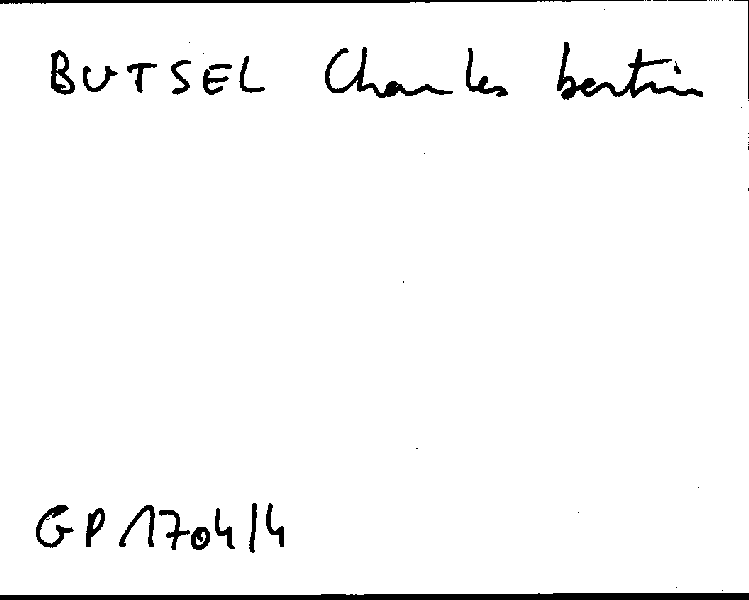 BUTSEL Charles bertin
GP 1704/4